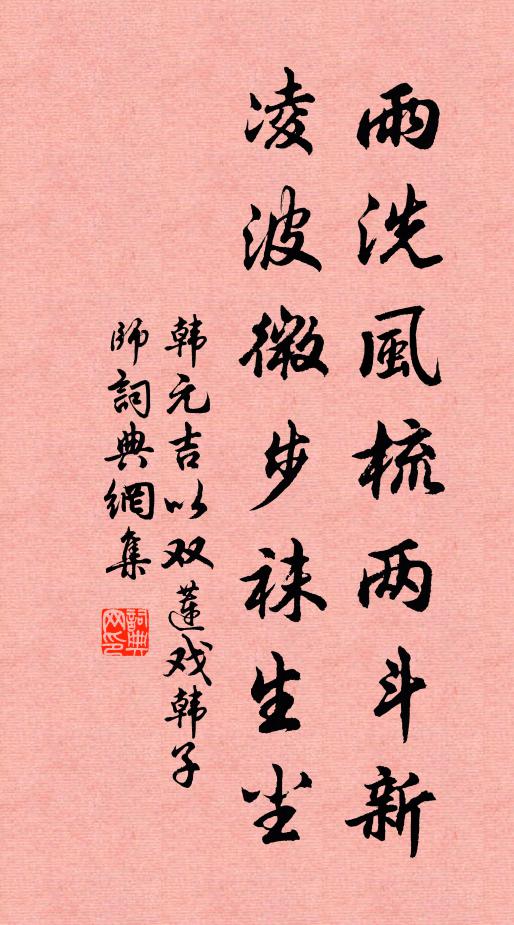 雨洗風梳两斗新
凌波微步袜生尘
韩元吉以双蓮戏韩子
师詞典網集
詞典网印